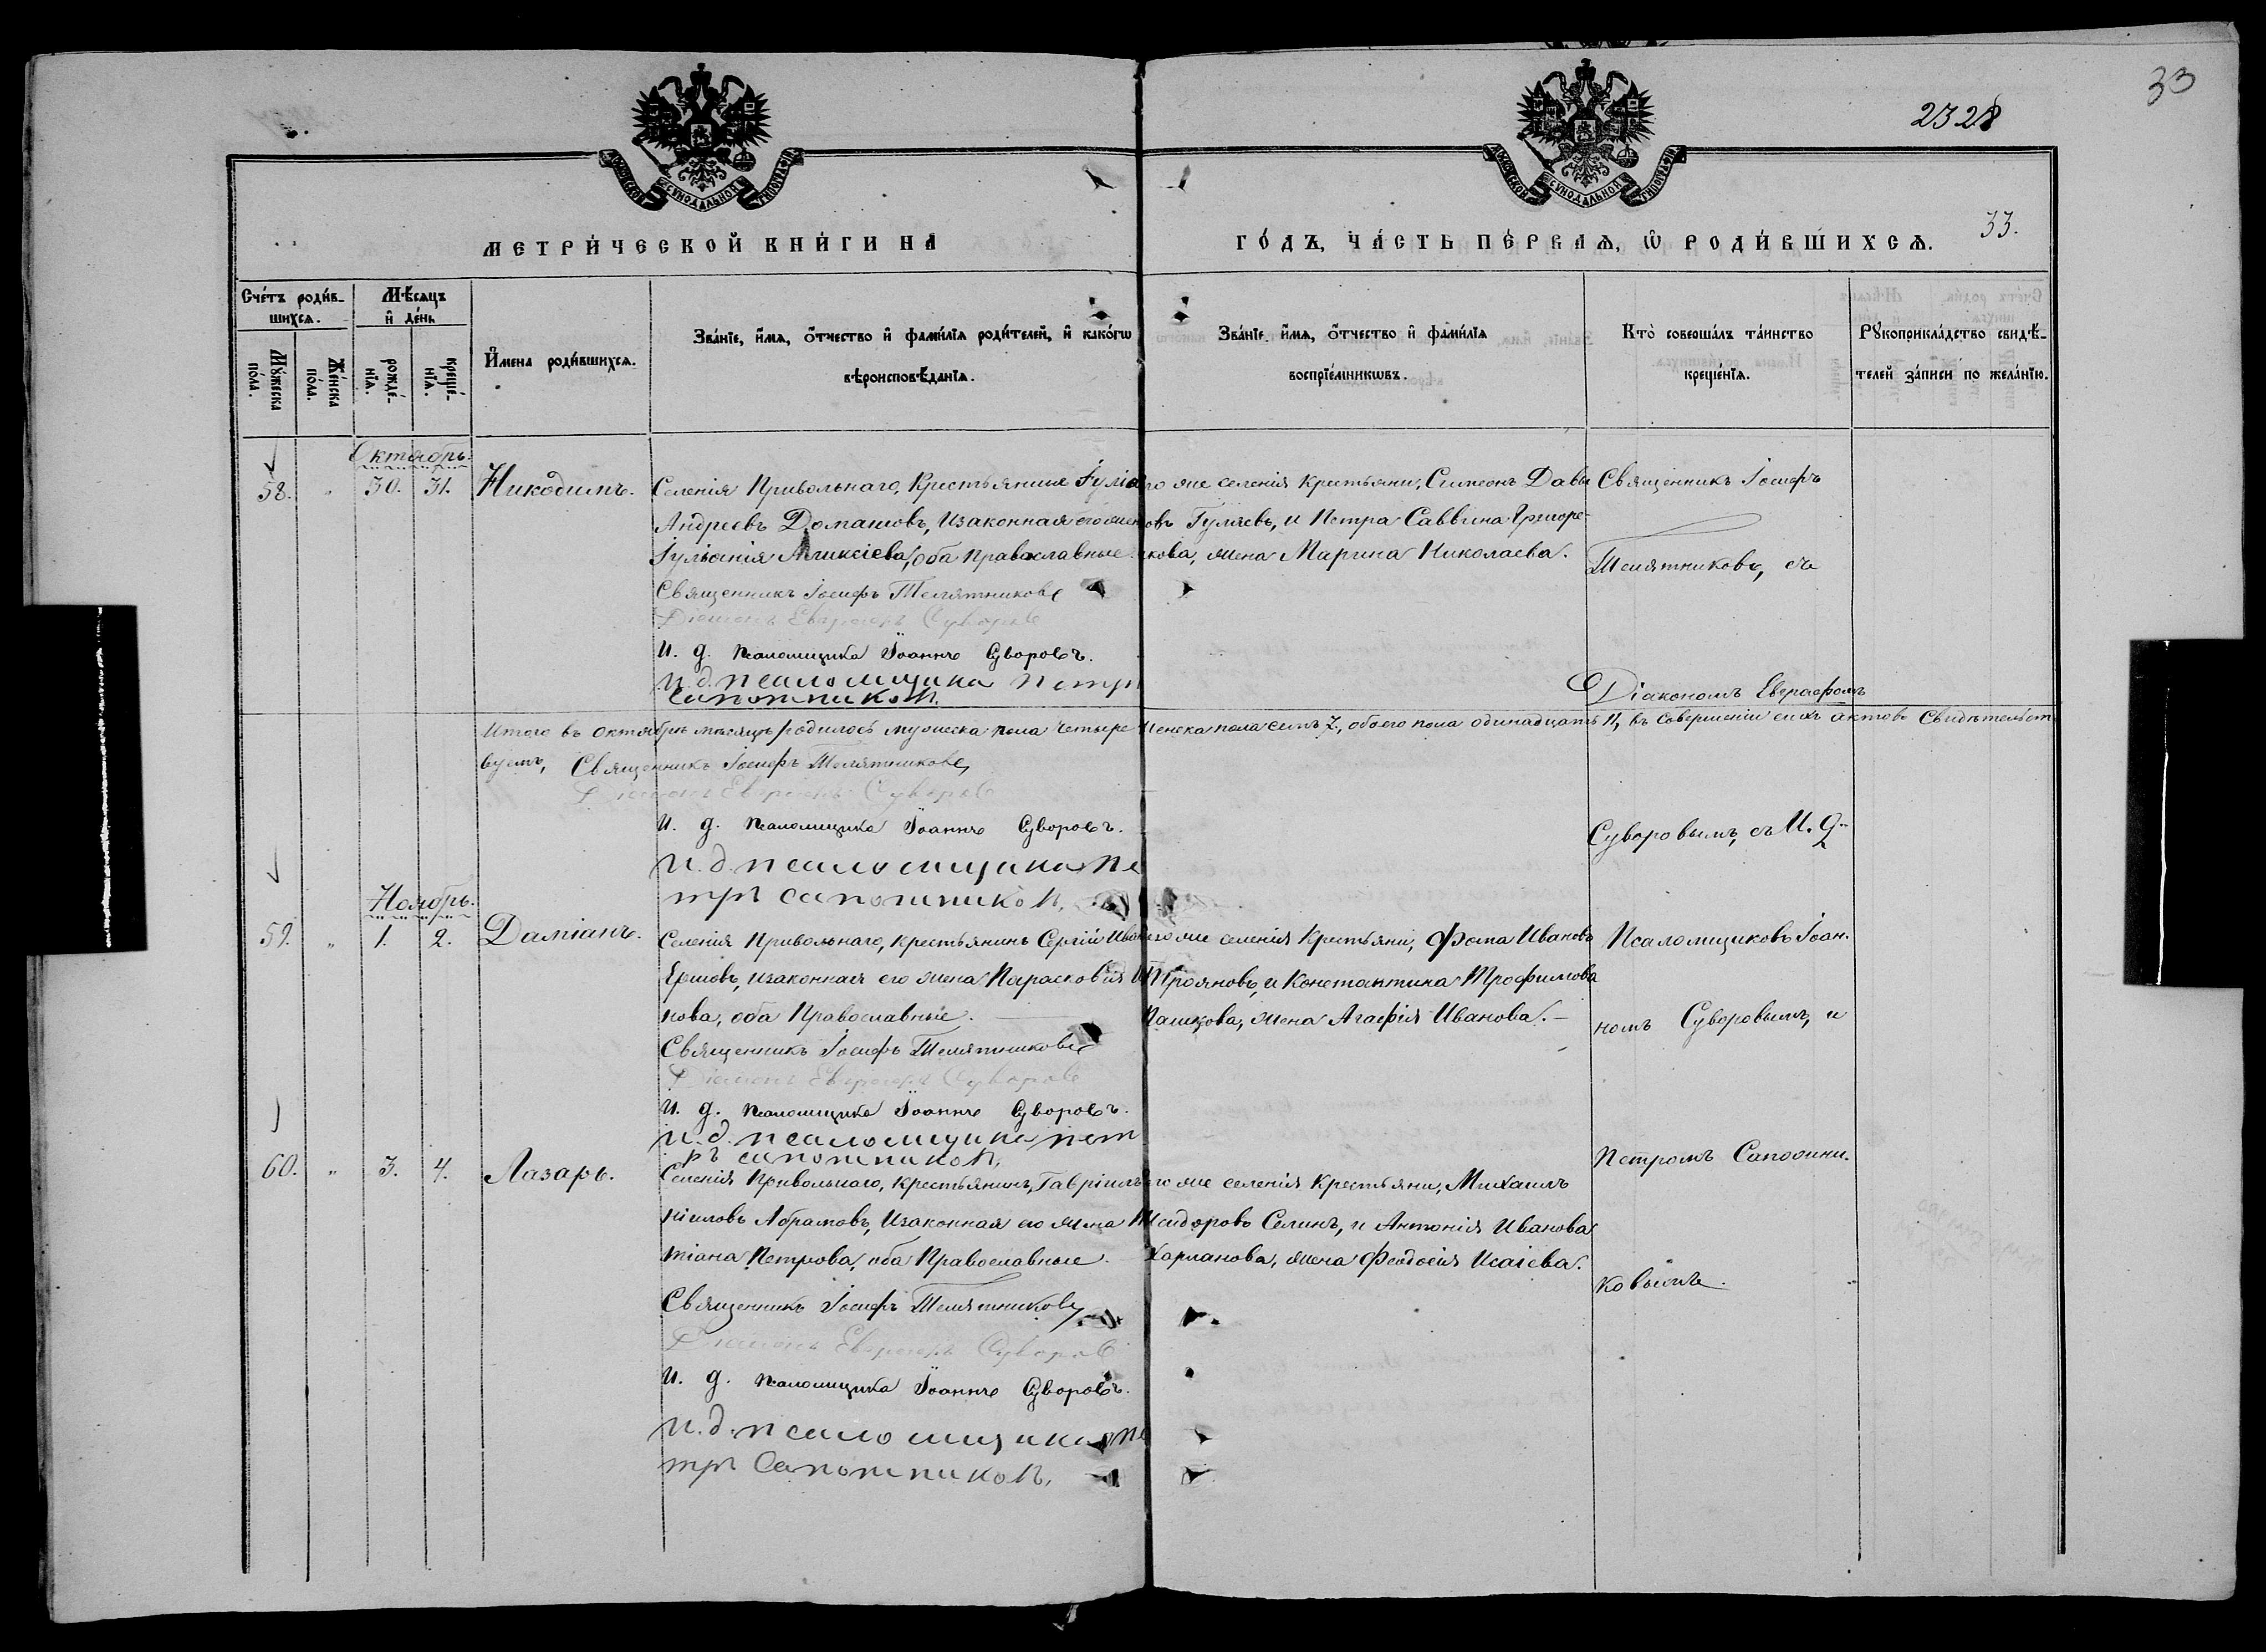 33
2328
МОСКОВСКОЙ СѴНОДАЛЬНОЙ ТИПОГРАФІИ
МОСКОВСКОЙ СѴНОДАЛЬНОЙ ТИПОГРАФІИ
33.
МЕТРИ́ЧЕСКОЙ КНИ́ГИ НА
ГО́ДЪ, ЧА́СТЬ ПЕ́РВАѦ, Ѿ РОДИ́ВШИХСѦ.
Сче́тъ роди́в-
шихсѧ.
Мꙋ́жеска
по́ла.
Же́нска
по́ла.
Мѣ́сѧцъ
и҆ де́нь
рожде́-
нїѧ.
креще́-
нїѧ.
И҆мена роди́вшихсѧ.
Зва́нїе, и҆́мѧ, ѻ҆́тчество и҆ фами́лїѧ роди́телей, и҆ како́гѡ
вѣроисповѣ́данїѧ.
Зва́нїе, и҆́мѧ, ѻ҆́тчество и҆ фами́лїѧ
воспрїе́мникѡвъ.
Кто̀ соверша́лъ та́инство
креще́нїѧ.
Рꙋкоприкла́дство свидѣ́-
телей за́писи по жела́нїю.
Октябрь.
58. " 30. 31. Никодимъ.
Селенія Привольнаго, Крестьянинъ Іуліа
Андреевъ Домашовъ, изаконная его жен
Іульянія Аликсіева, оба Православные.
Священникъ Іосифъ Телятниковъ
Діаконъ Евграфъ Суворовъ
И. д. псаломщика Іоаннъ Суворовъ.
И. д. псаломщика Петръ
Сапожников.
го же селенія Крестьяни, Симеонъ Давы
овъ Гуляевъ, и Петра Саввина Григоре-
кова, жена Марина Николаева.
Священникъ Іосифъ
Телятниковъ, съ
Діакономъ Евграфомъ
Итого въ октябрѣ мѣсяцѣ родилось мужеска пола четыре женска пола семь 7, обоего пола одинадцать 11, въ совершеніи сихъ актовъ Свидѣтельст
вуемъ, Священникъ Іосифъ Телятниковъ
Діаконъ Евграфъ Суворовъ
И. д. псаломщика Іоаннъ Суворовъ.
И. д. псаломщика Пе
тръ Сапожников.
Суворовымъ, съ И. д.
Ноябрь.
59. " 1. 2. Даміанъ.
Селенія Привольнаго, крестьянинъ Сергій Иван
Ершовъ, изаконная его жена Парасковія
нова, оба Православные.
Священникъ Іосифъ Телятниковъ
Діаконъ Евграфъ Суворовъ
И. д. псаломщика Іоаннъ Суворовъ.
И. д. псаломщика Пет
ръ Сапожников.
го же селенія Крестьяни, Фома Ивановъ
Трояновъ, и Константина Трофимова
Пашкова, жена Агафія Иванова.
Псаломщиковъ Іоан-
номъ Суворовымъ, и
Петромъ Сапожни-
ковымъ.
60. " 3. 4. Лазарь.
Селенія Привольнаго, крестьянинъ, Гавріилъ
ріиловъ Абрамовъ, изаконная его жена
тіана Петрова, оба Православные.
Священникъ Іосифъ Телятниковъ
Діаконъ Евграфъ Суворовъ
И. д. псаломщика Іоаннъ Суворовъ.
И. д. псаломщика Пе
тръ Сапожников.
го же селенія Крестьяни, Михаилъ
Исидоровъ Селинъ, и Антонія Иванова
Харланова, жена Феодосія Исаіева.